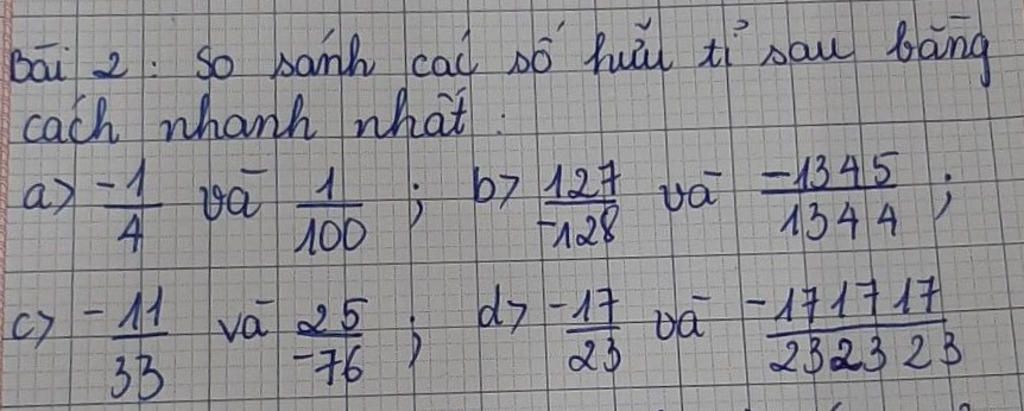 Bài 2 : So sánh các số hữu tỉ sau bằng
cách nhanh nhất :
a) -1/4 và 1/100 ; b) 127/-128 và -1345/1344 ;
c) -11/33 và 25/-76 ; d) -17/23 và -171717/232323